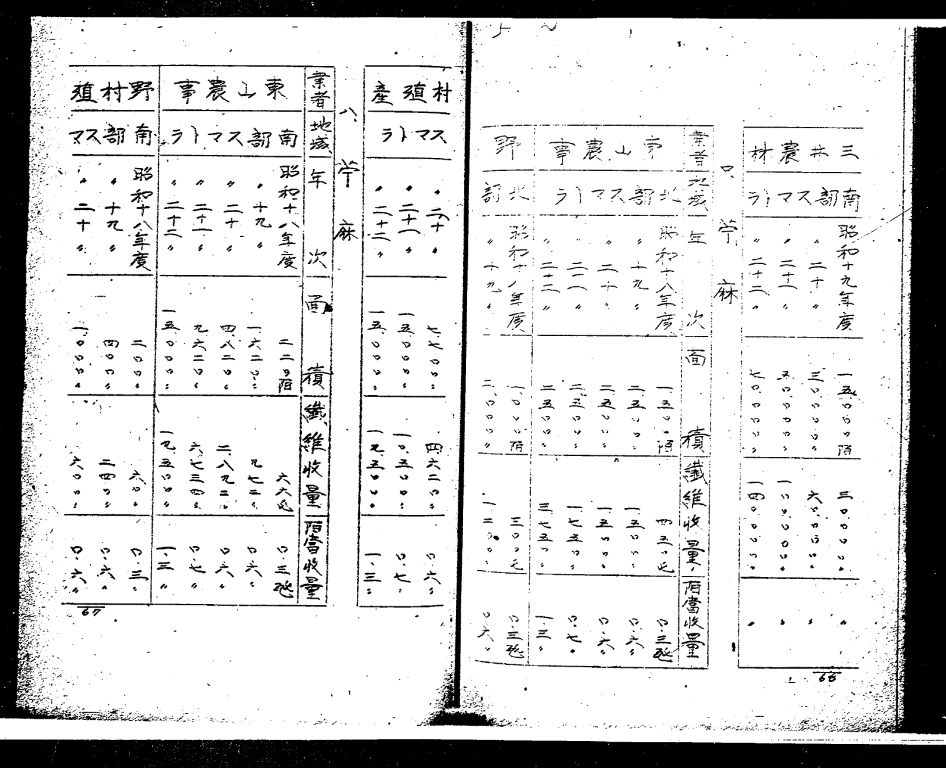 三井農林
南部スマトラ
昭和十九年度 一五.〇〇〇陌 三〇.〇〇〇〃 〃
〃二十〃 三〇.〇〇〇〃 六〇.〇〇〇〃 〃
〃二十一〃 五〇.〇〇〇〃 一〇〇.〇〇〇〃 〃
〃二十二〃 七〇.〇〇〇〃 一四〇.〇〇〇〃 〃
ロ.苧麻
業者 地域 年次 面積 纎維收量 陌當收量
東山農事
北部スマトラ
昭和十八年度 一.五〇〇陌 四五〇瓲 〇.三瓲
〃十九〃 二.五〇〇〃 一.五〇〇〃 〇.六〃
〃二十〃 二.五〇〇〃 一.五〇〇〃 〇.六〃
〃二十一〃 二.五〇〇〃 一.七五〇〃 〇.七〃
〃二十二〃 二.五〇〇〃 三.七五〇〃 一.三〃
野
北部
昭和十八年度 一.〇〇〇陌 三〇〇瓲 〇.三瓲
〃十九〃 二.〇〇〇〃 一.二〇〇〃 〇.六〃
66
村殖産
スマトラ
〃二十〃 七.七〇〇〃 四.六二〇〃 〇.六〃
〃二十一〃 一五.〇〇〇〃 一〇.五〇〇〃 〇.七〃
〃二十二〃 一五.〇〇〇〃 一九.五〇〇〃 一.三〃
ハ 苧麻
業者 地域 年次 面積 纎維收量 陌當收量
東山農事
南部スマトラ
昭和十八年度 二二〇陌 六六瓲 〇.三瓲
〃十九〃 一.六二〇〃 九七二〃 〇.六〃
〃二十〃 四.八二〇〃 二.八九二〃 〇.六〃
〃二十一〃 九.六二〇〃 六.七三四〃 〇.七〃
〃二十二〃 一五.〇〇〇〃 一九.五〇〇〃 一.三〃
野村殖
南部スマ
昭和十八年度 二〇〇〃 六〇〃 〇.三〃
〃十九〃 四〇〇〃 二四〇〃 〇.六〃
〃二十〃 一.〇〇〇〃 六〇〇〃 〇.六〃
67